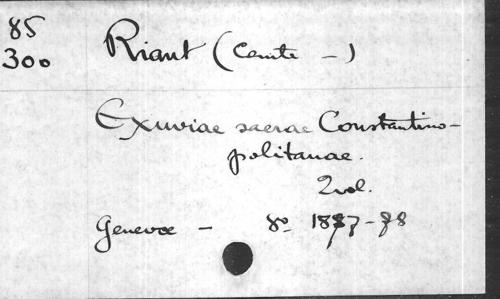 85
300
Riant (Comte –)
Exuviae sacrae Constantino-
politanae.
2 vol.
Genevae – 8º 1877-78